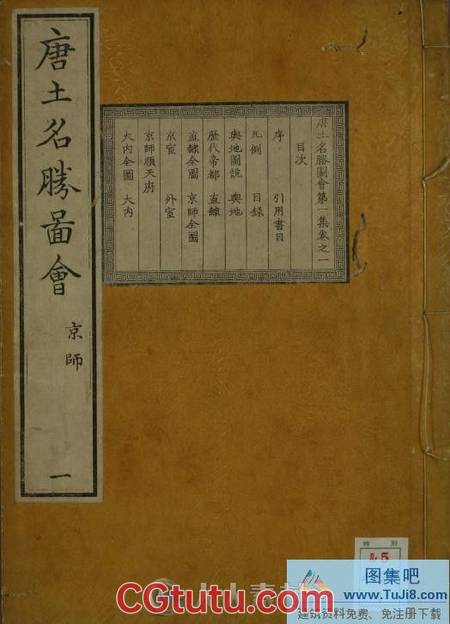 唐土名勝啚會
京師
一
唐土名勝圖會第一集卷之一
目次
序 引用書目
凡例 目錄
輿地圖説 輿地
歷代帝都 直隸
直隸全圖 京師全圖
京官 外官
京師順天府
大内全圖 大内
特別
ル5
图集吧
www.TuJi8.com
建筑资料免费、免注册下载
CGtutu.com